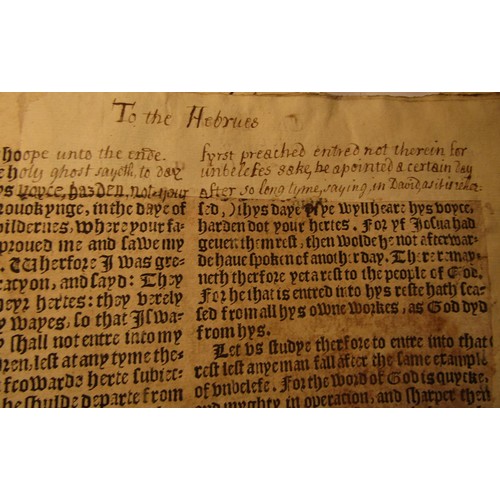 To the Hebrues
hoope unto the ende.
holy ghost sayeth, to day
voyce, harden not your
rouokynge, in the daye of
ildernes, where your fa-
proued me and sawe my
Wherfore I was gre-
racyon, and sayd: They
heyr hertes: they verely
wayes, so that I swa-
shall not entre into my
ren, lest at any tyme the-
frowarde herte subiec-
he shulde departe from
fyrst preached entred not therein for
unbelefes sake, he apointed a certain day
after so long tyme, saying, in Dauid as it is rehear-
sed,) thys daye yf ye wyll heare hys voyce,
harden not your hertes. For yf Josua had
geuen them rest, then wolde he not afterwar-
de haue spoken of another day. There may-
neth therfore yet a rest to the people of God.
For he that is entred into hys reste hath sea-
sed from all hys owne workes, as God dyd
from hys.
Let vs studye therfore to entre into that
rest lest anye man fall after the same example
of vnbelefe. For the word of God is quycke,
and myghty in operation, and sharper then